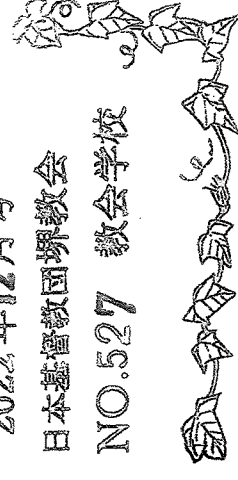 2022年12月号
日本基督教団堺教会
NO.527 教会学校